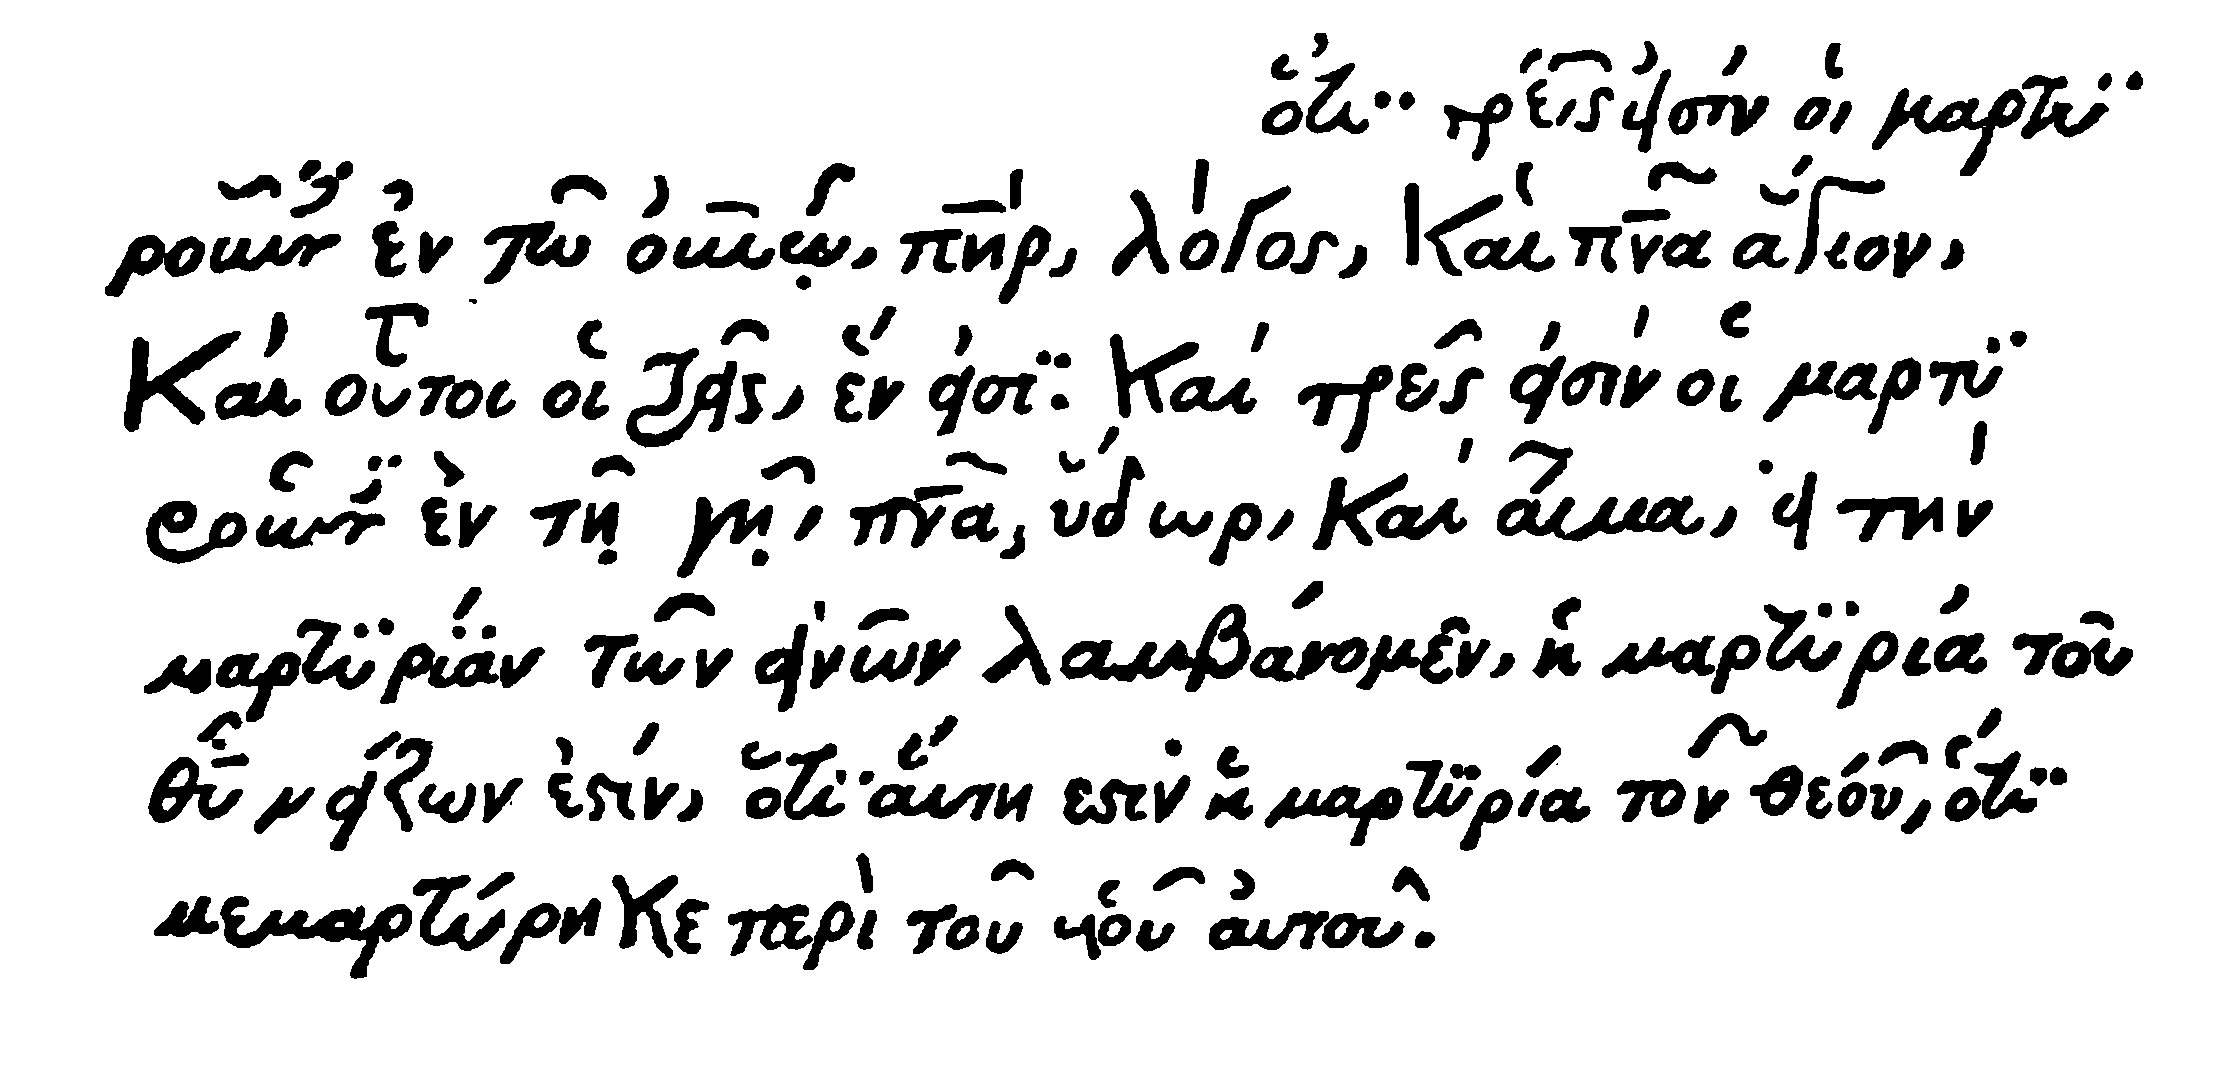 ὅτϊ τρεῖς εἰσὶν οἱ μαρτϋ
ροῦν̈ ἐν τῶ οὐνῷ, π̅η̅ρ, λόγος, Καὶ π̅ν̅α ἅγιον,
Καὶ οὗτοι οἱ τρεῖς, ἕν εἰσϊ: Καὶ τρεῖς εἰσὶν οἱ μαρτϋ
ροῦν̈ ἐν τῇ γῇ, π̅ν̅α, ὕδωρ, Καὶ αἷμα, εἰ τὴν
μαρτϋρίαν τῶν ἀν̅ω̅ν λαμβάνομεν, ἡ μαρτϋρία τοῦ
θ̅υ̅ μείζων ἐϛίν, ὅτϊ αὕτη εϛὶν ἡ μαρτϋρία τοῦ θεοῦ, ὅτϊ
μεμαρτύρηΚε περὶ τοῦ υἱοῦ ἀυτοῦ.